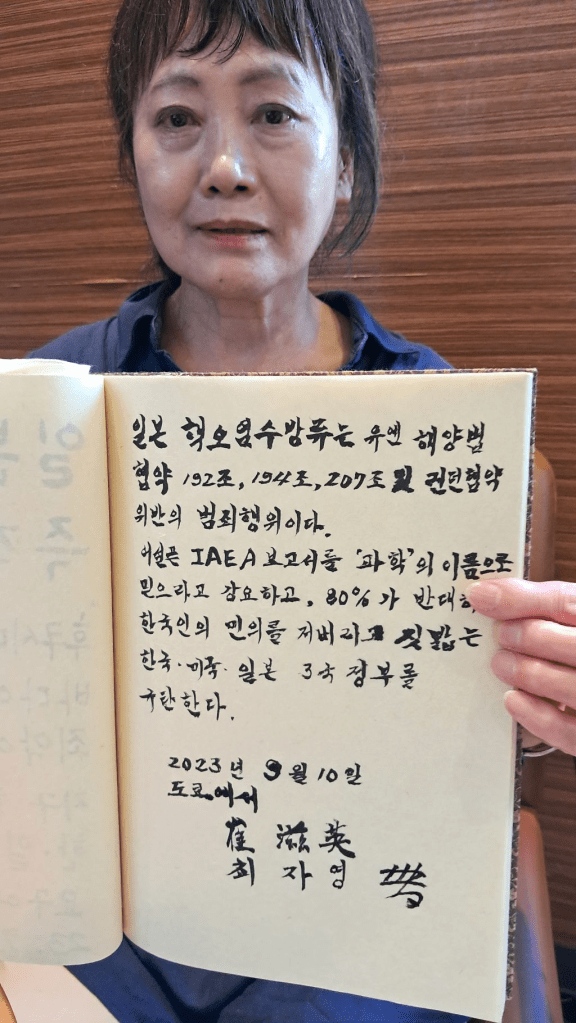 일본 핵오염수방류는 유엔 해양법
협약 192조, 194조, 207조 및 런던협약
위반의 범죄행위이다.
어설픈 IAEA 보고서를 '과학'의 이름으로
믿으라고 강요하고, 80%가 반대하
한국인의 민의를 저버리고 짓밟는
한국·미국·일본 3국 정부를
규탄한다.
2023년 9월 10일
도쿄에서
崔 滋英
최 자영